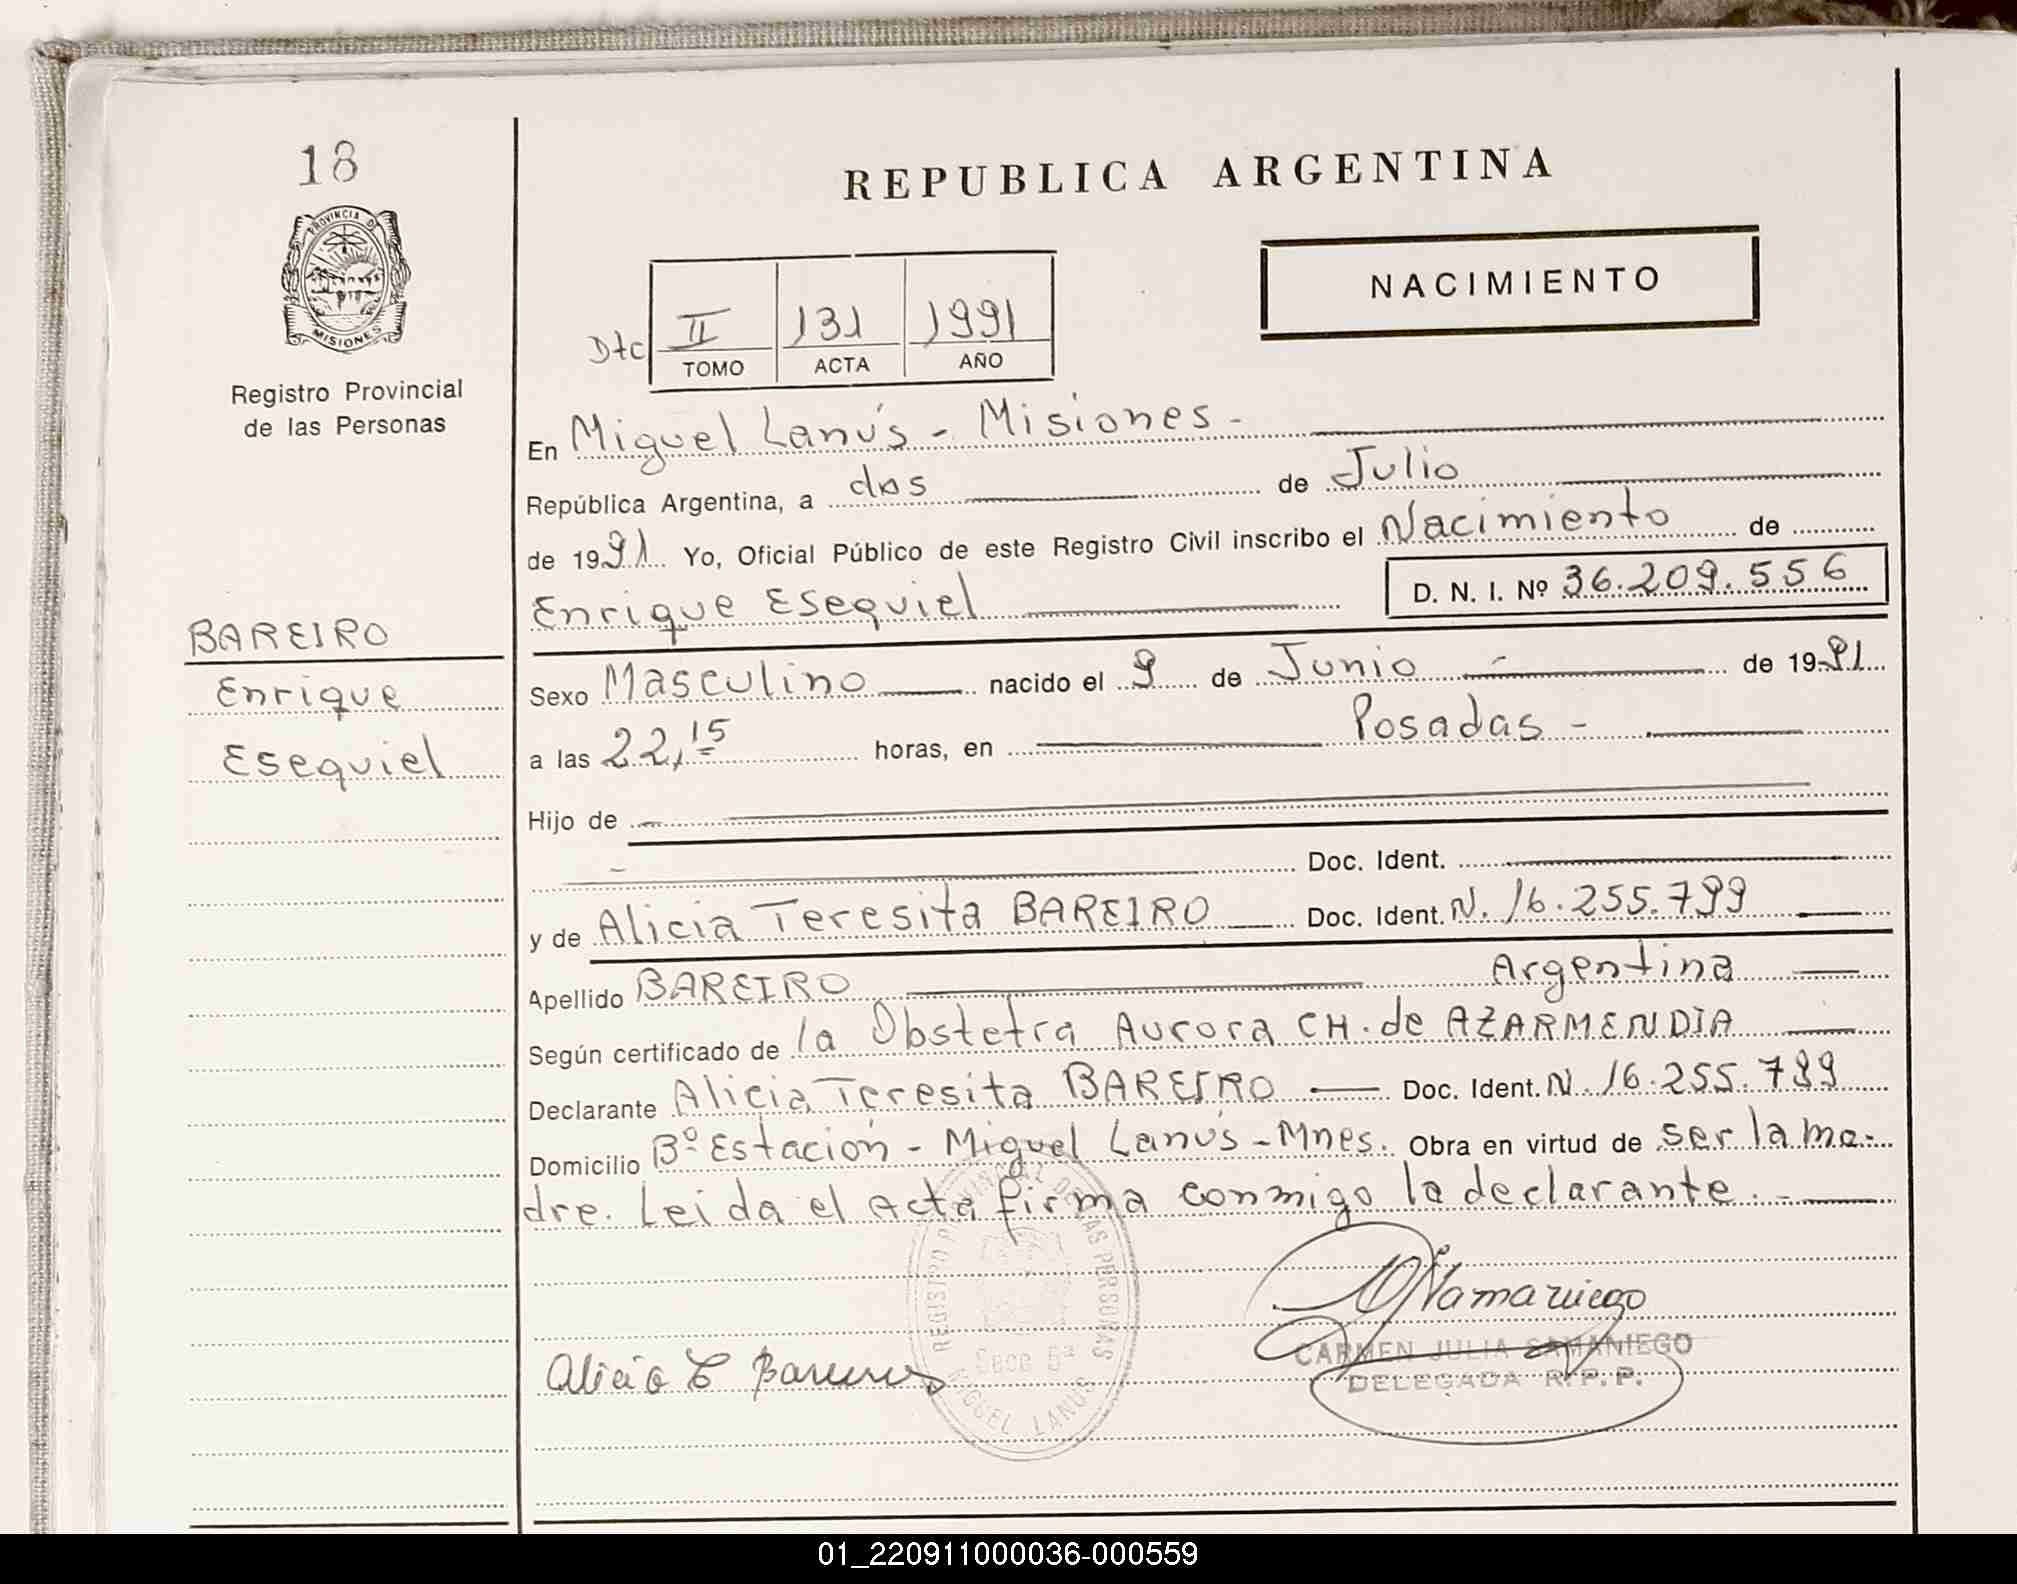 18
PROVINCIA DE
MISIONES
Registro Provincial
de las Personas
BAREIRO
Enrique
Esequiel
REPUBLICA ARGENTINA
NACIMIENTO
Dtc II 131 1991
TOMO ACTA AÑO
En Miguel Lanús - Misiones -
República Argentina, a dos de Julio
de 1991 Yo, Oficial Público de este Registro Civil inscribo el Nacimiento de
Enrique Esequiel D. N. I. Nº 36.209.556
Sexo Masculino nacido el 9 de Junio de 1991
a las 22,15 horas, en Posadas -
Hijo de
Doc. Ident.
y de Alicia Teresita BAREIRO Doc. Ident. N. 16.255.799
Apellido BAREIRO Argentina
Según certificado de la Obstetra Aurora CH. de AZARMENDIA
Declarante Alicia Teresita BAREIRO Doc. Ident. N. 16.255.799
Domicilio Bº Estación - Miguel Lanús - Mnes. Obra en virtud de ser la ma-
dre. Leida el Acta firma conmigo la declarante. -
REGISTRO PROVINCIAL DE LAS PERSONAS
Secc 5ª
MIGUEL LANUS
Alicia T Bareiro
CARMEN JULIA SAMANIEGO
DELEGADA R.P.P.
01_220911000036-000559